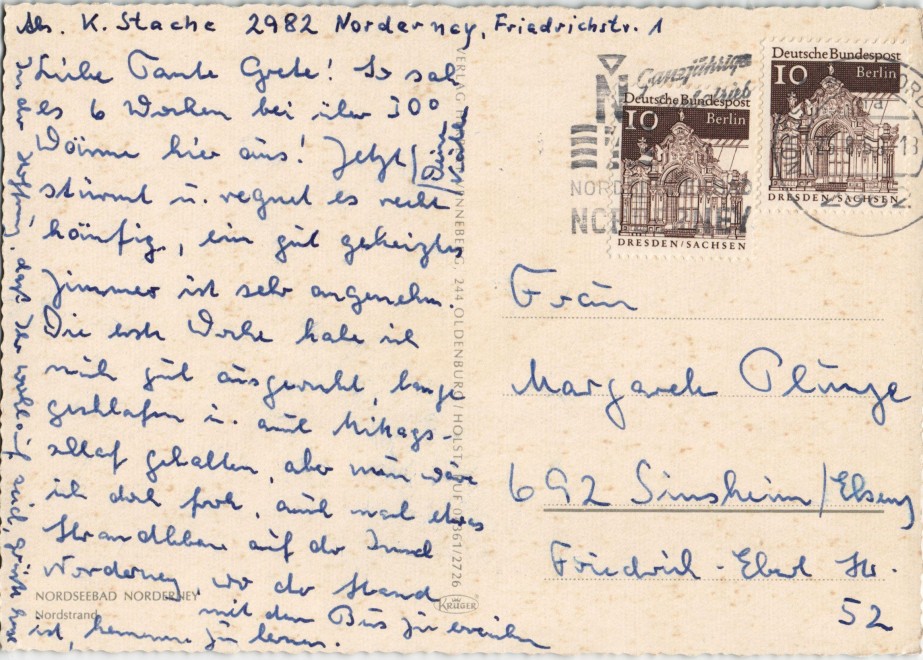 Abs. K. Stache 2982 Norderney, Friedrichstr. 1
Liebe Tante Grete! So sah
es 6 Wochen bei über 30°
Wärme hier aus! Jetzt
stürmt u. regnet es recht
häufig, ein gut geheiztes
Zimmer ist sehr angenehm.
Die erste Woche habe ich
mich gut ausgeruht, lange
geschlafen u. auch Mittags-
schlaf gehalten, aber nun wäre
ich doch froh, auch noch etwas
Strandleben auf der Insel
Norderney, wo der Strand
mit dem Bus zu erreichen
ist, kennen zu lernen.
In der Hoffnung, daß Ihr wohlauf seid, grüßt Eure
NORDSEEBAD NORDERNEY
Nordstrand
244 OLDENBURG/HOLST
2726
KRÜGER
N
Ganzjährig
NORDERNEY
Deutsche Bundespost
10 Berlin
DRESDEN/SACHSEN
Deutsche Bundespost
10 Berlin
DRESDEN/SACHSEN
Frau
Margarete Plünze
692 Sinsheim/Elsenz
Friedrich-Ebert Str.
52